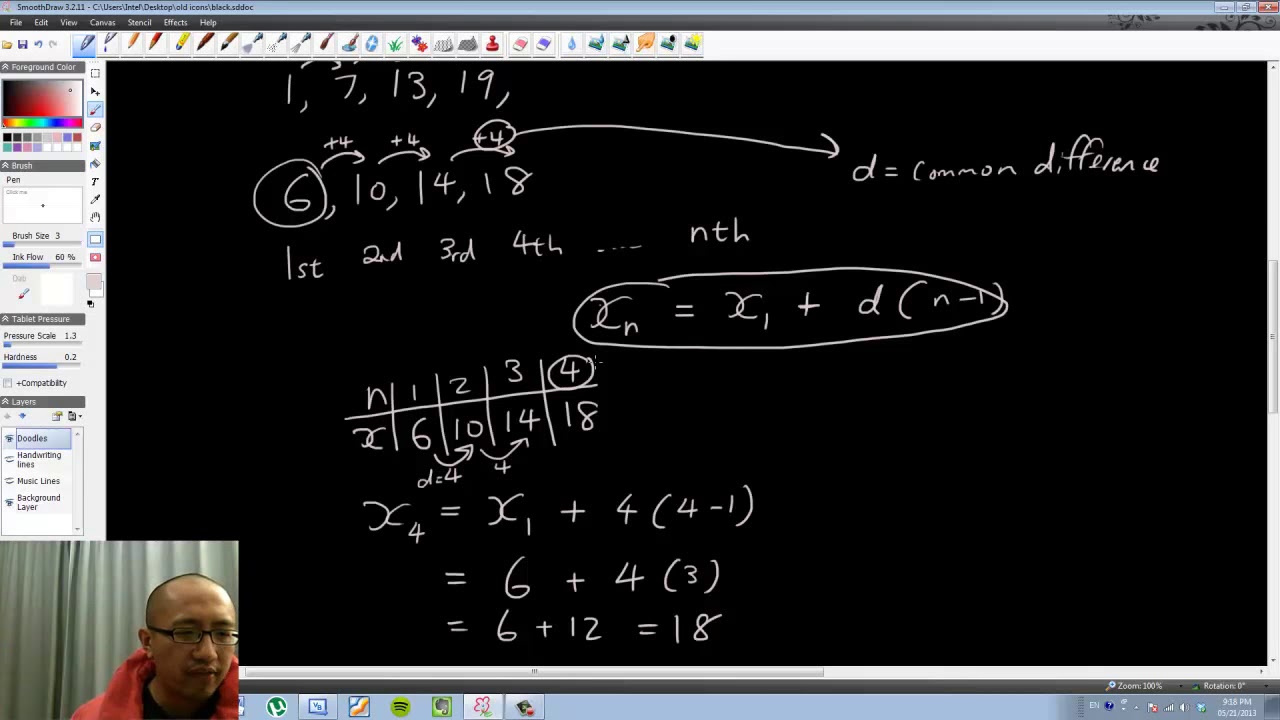 SmoothDraw 3.2.11 - C:\Users\Intel\Desktop\old icons\black.sddoc
File Edit View Canvas Stencil Effects Help
Foreground Color
Brush
Pen
Click me
Brush Size 3
Ink Flow 60 %
Dab
Tablet Pressure
Pressure Scale 1.3
Hardness 0.2
+Compatibility
Layers
Doodles
Handwriting lines
Music Lines
Background Layer
1, 7, 13, 19,
+4 +4 +4
d = common difference
6, 10, 14, 18
1st 2nd 3rd 4th .... nth
xₙ = x₁ + d (n-1)
n 1 2 3 4
x 6 10 14 18
d=4 4
x₄ = x₁ + 4 (4-1)
= 6 + 4 (3)
= 6 + 12 = 18
Zoom: 100% Rotation: 0°
EN 9:18 PM
05/21/2013